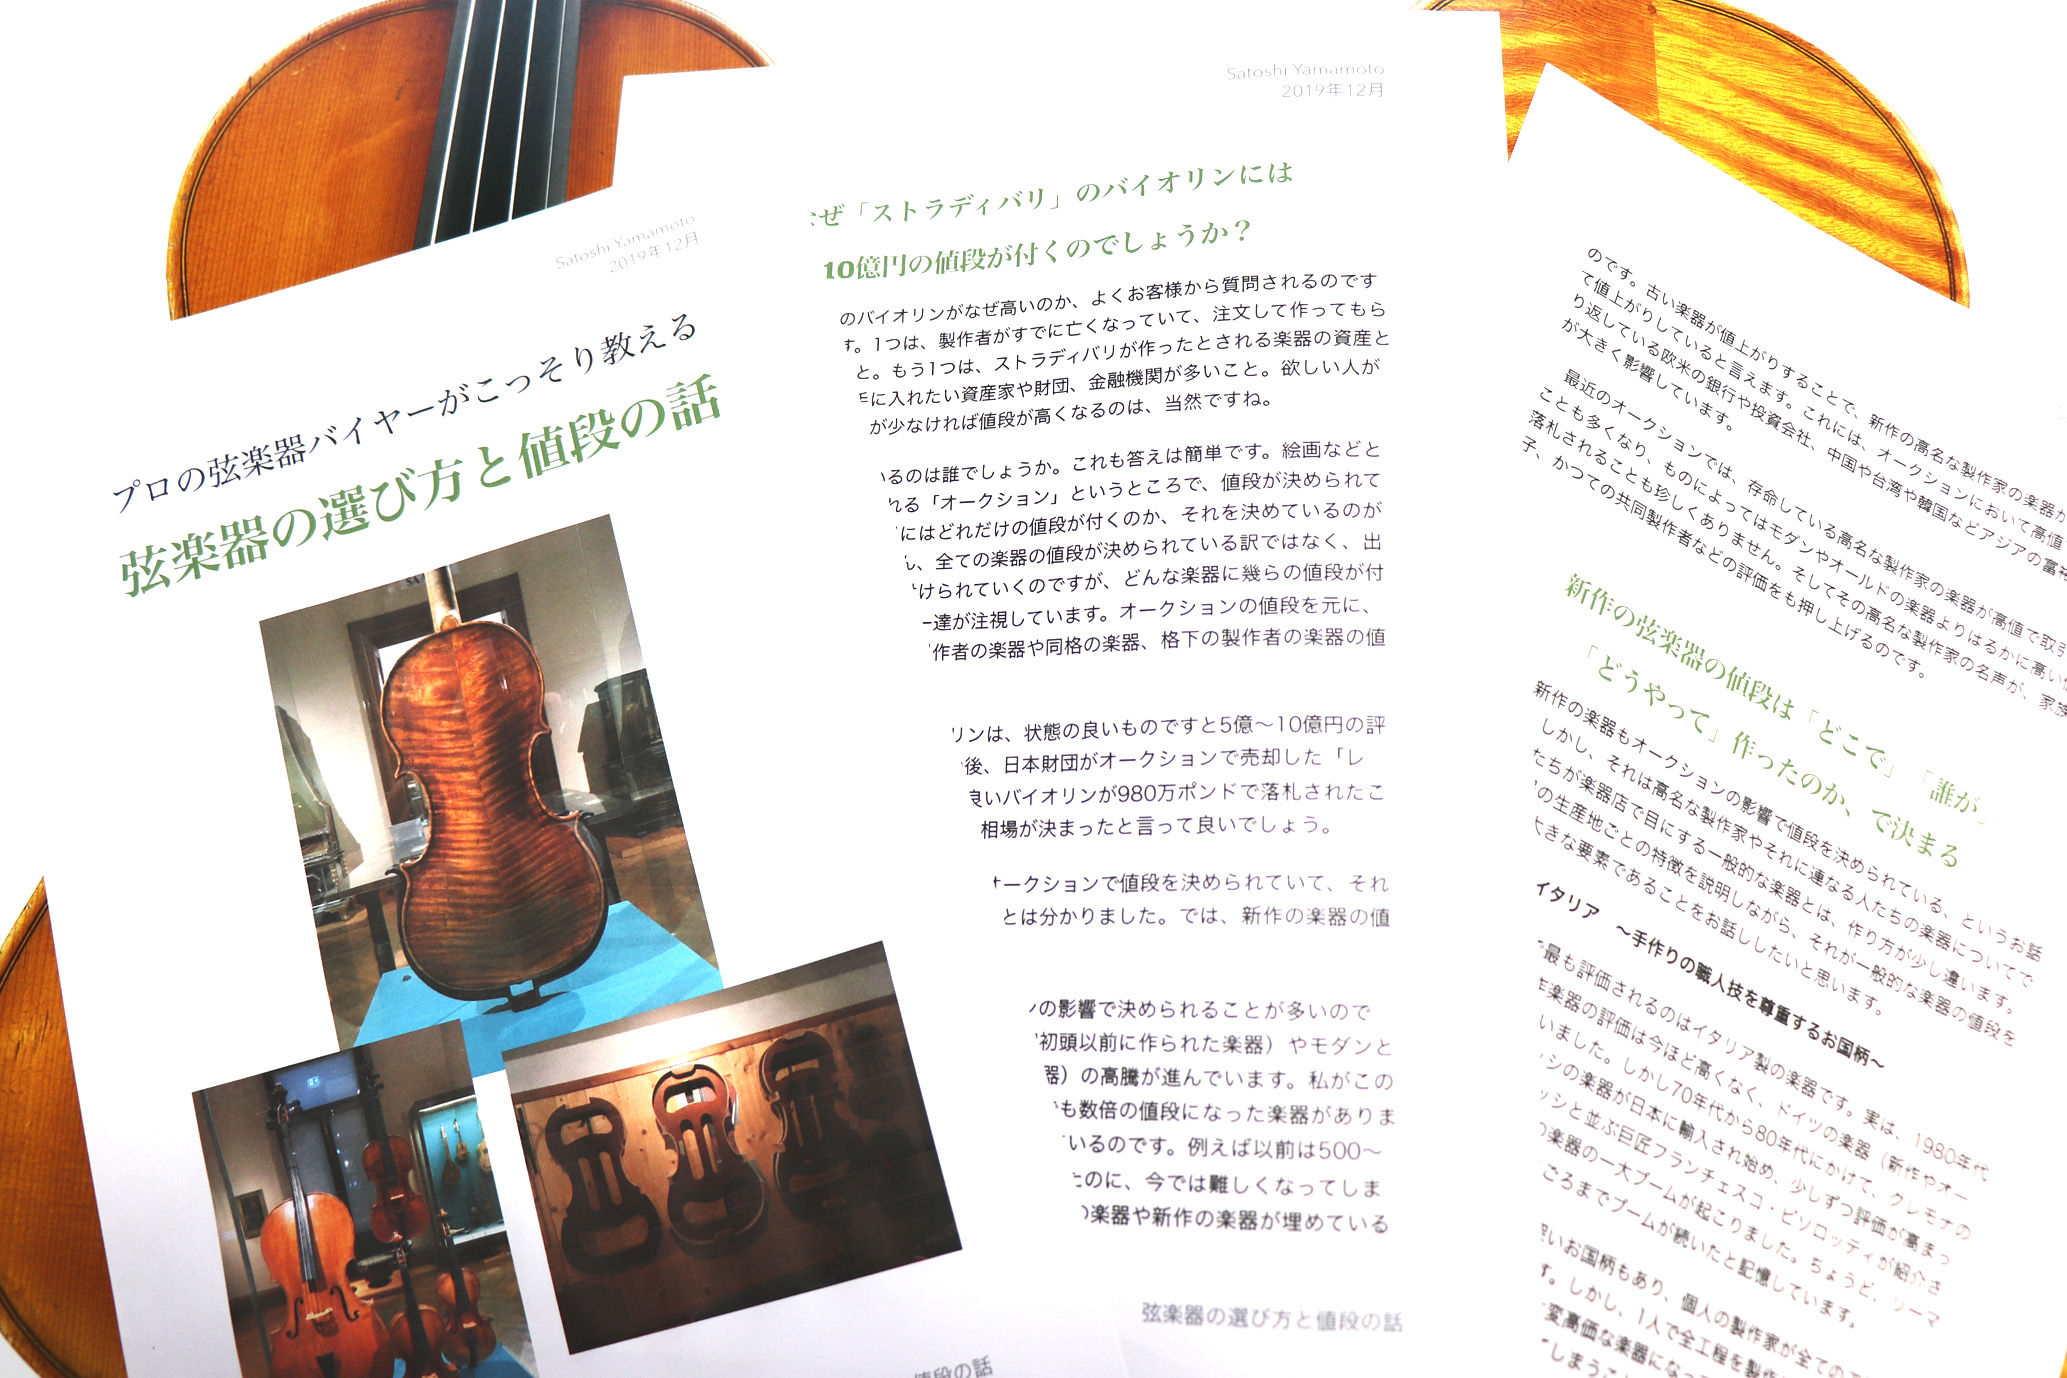 Satoshi Yamamoto
2019年12月
プロの弦楽器バイヤーがこっそり教える
弦楽器の選び方と値段の話
値段の話
Satoshi Yamamoto
2019年12月
ぜ「ストラディバリ」のバイオリンには
10億円の値段が付くのでしょうか？
のバイオリンがなぜ高いのか、よくお客様から質問されるのです
す。1つは、製作者がすでに亡くなっていて、注文して作ってもら
と。もう1つは、ストラディバリが作ったとされる楽器の資産と
に入れたい資産家や財団、金融機関が多いこと。欲しい人が
が少なければ値段が高くなるのは、当然ですね。
るのは誰でしょうか。これも答えは簡単です。絵画などと
れる「オークション」というところで、値段が決められて
にはどれだけの値段が付くのか、それを決めているのが
ん、全ての楽器の値段が決められている訳ではなく、出
けられていくのですが、どんな楽器に幾らの値段が付
ー達が注視しています。オークションの値段を元に、
作者の楽器や同格の楽器、格下の製作者の楽器の値
リンは、状態の良いものですと5億〜10億円の評
後、日本財団がオークションで売却した「レ
良いバイオリンが980万ポンドで落札されたこ
相場が決まったと言って良いでしょう。
オークションで値段を決められていて、それ
とは分かりました。では、新作の楽器の値
ンの影響で決められることが多いので
初頭以前に作られた楽器）やモダンと
器）の高騰が進んでいます。私がこの
も数倍の値段になった楽器がありま
いるのです。例えば以前は500〜
たのに、今では難しくなってしま
の楽器や新作の楽器が埋めている
弦楽器の選び方と値段の話
のです。古い楽器が値上がりすることで、新作の高名な製作家の楽器が
て値上がりしていると言えます。これには、オークションにおいて高値
り返している欧米の銀行や投資会社、中国や台湾や韓国などアジアの富裕
が大きく影響しています。
最近のオークションでは、存命している高名な製作家の楽器が高値で取引
ことも多くなり、ものによってはモダンやオールドの楽器よりはるかに高い
落札されることも珍しくありません。そしてその高名な製作家の名声が、家族
子、かつての共同製作者などの評価をも押し上げるのです。
新作の弦楽器の値段は「どこで」「誰が」
「どうやって」作ったのか、で決まる
新作の楽器もオークションの影響で値段を決められている、というお話
しかし、それは高名な製作家やそれに連なる人たちの楽器についてで
たちが楽器店で目にする一般的な楽器とは、作り方が少し違います。
の生産地ごとの特徴を説明しながら、それが一般的な楽器の値段を
大きな要素であることをお話ししたいと思います。
イタリア　〜手作りの職人技を尊重するお国柄〜
最も評価されるのはイタリア製の楽器です。実は、1980年代
楽器の評価は今ほど高くなく、ドイツの楽器（新作やオー
いました。しかし70年代から80年代にかけて、クレモナの
シの楽器が日本に輸入され始め、少しずつ評価が高まっ
ッシと並ぶ巨匠フランチェスコ・ビソロッティが紹介さ
の楽器の一大ブームが起こりました。ちょうど、リーマ
ごろまでブームが続いたと記憶しています。
いお国柄もあり、個人の製作家が全ての
す。しかし、1人で全工程を製作
変高価な楽器になっ
しまうこ